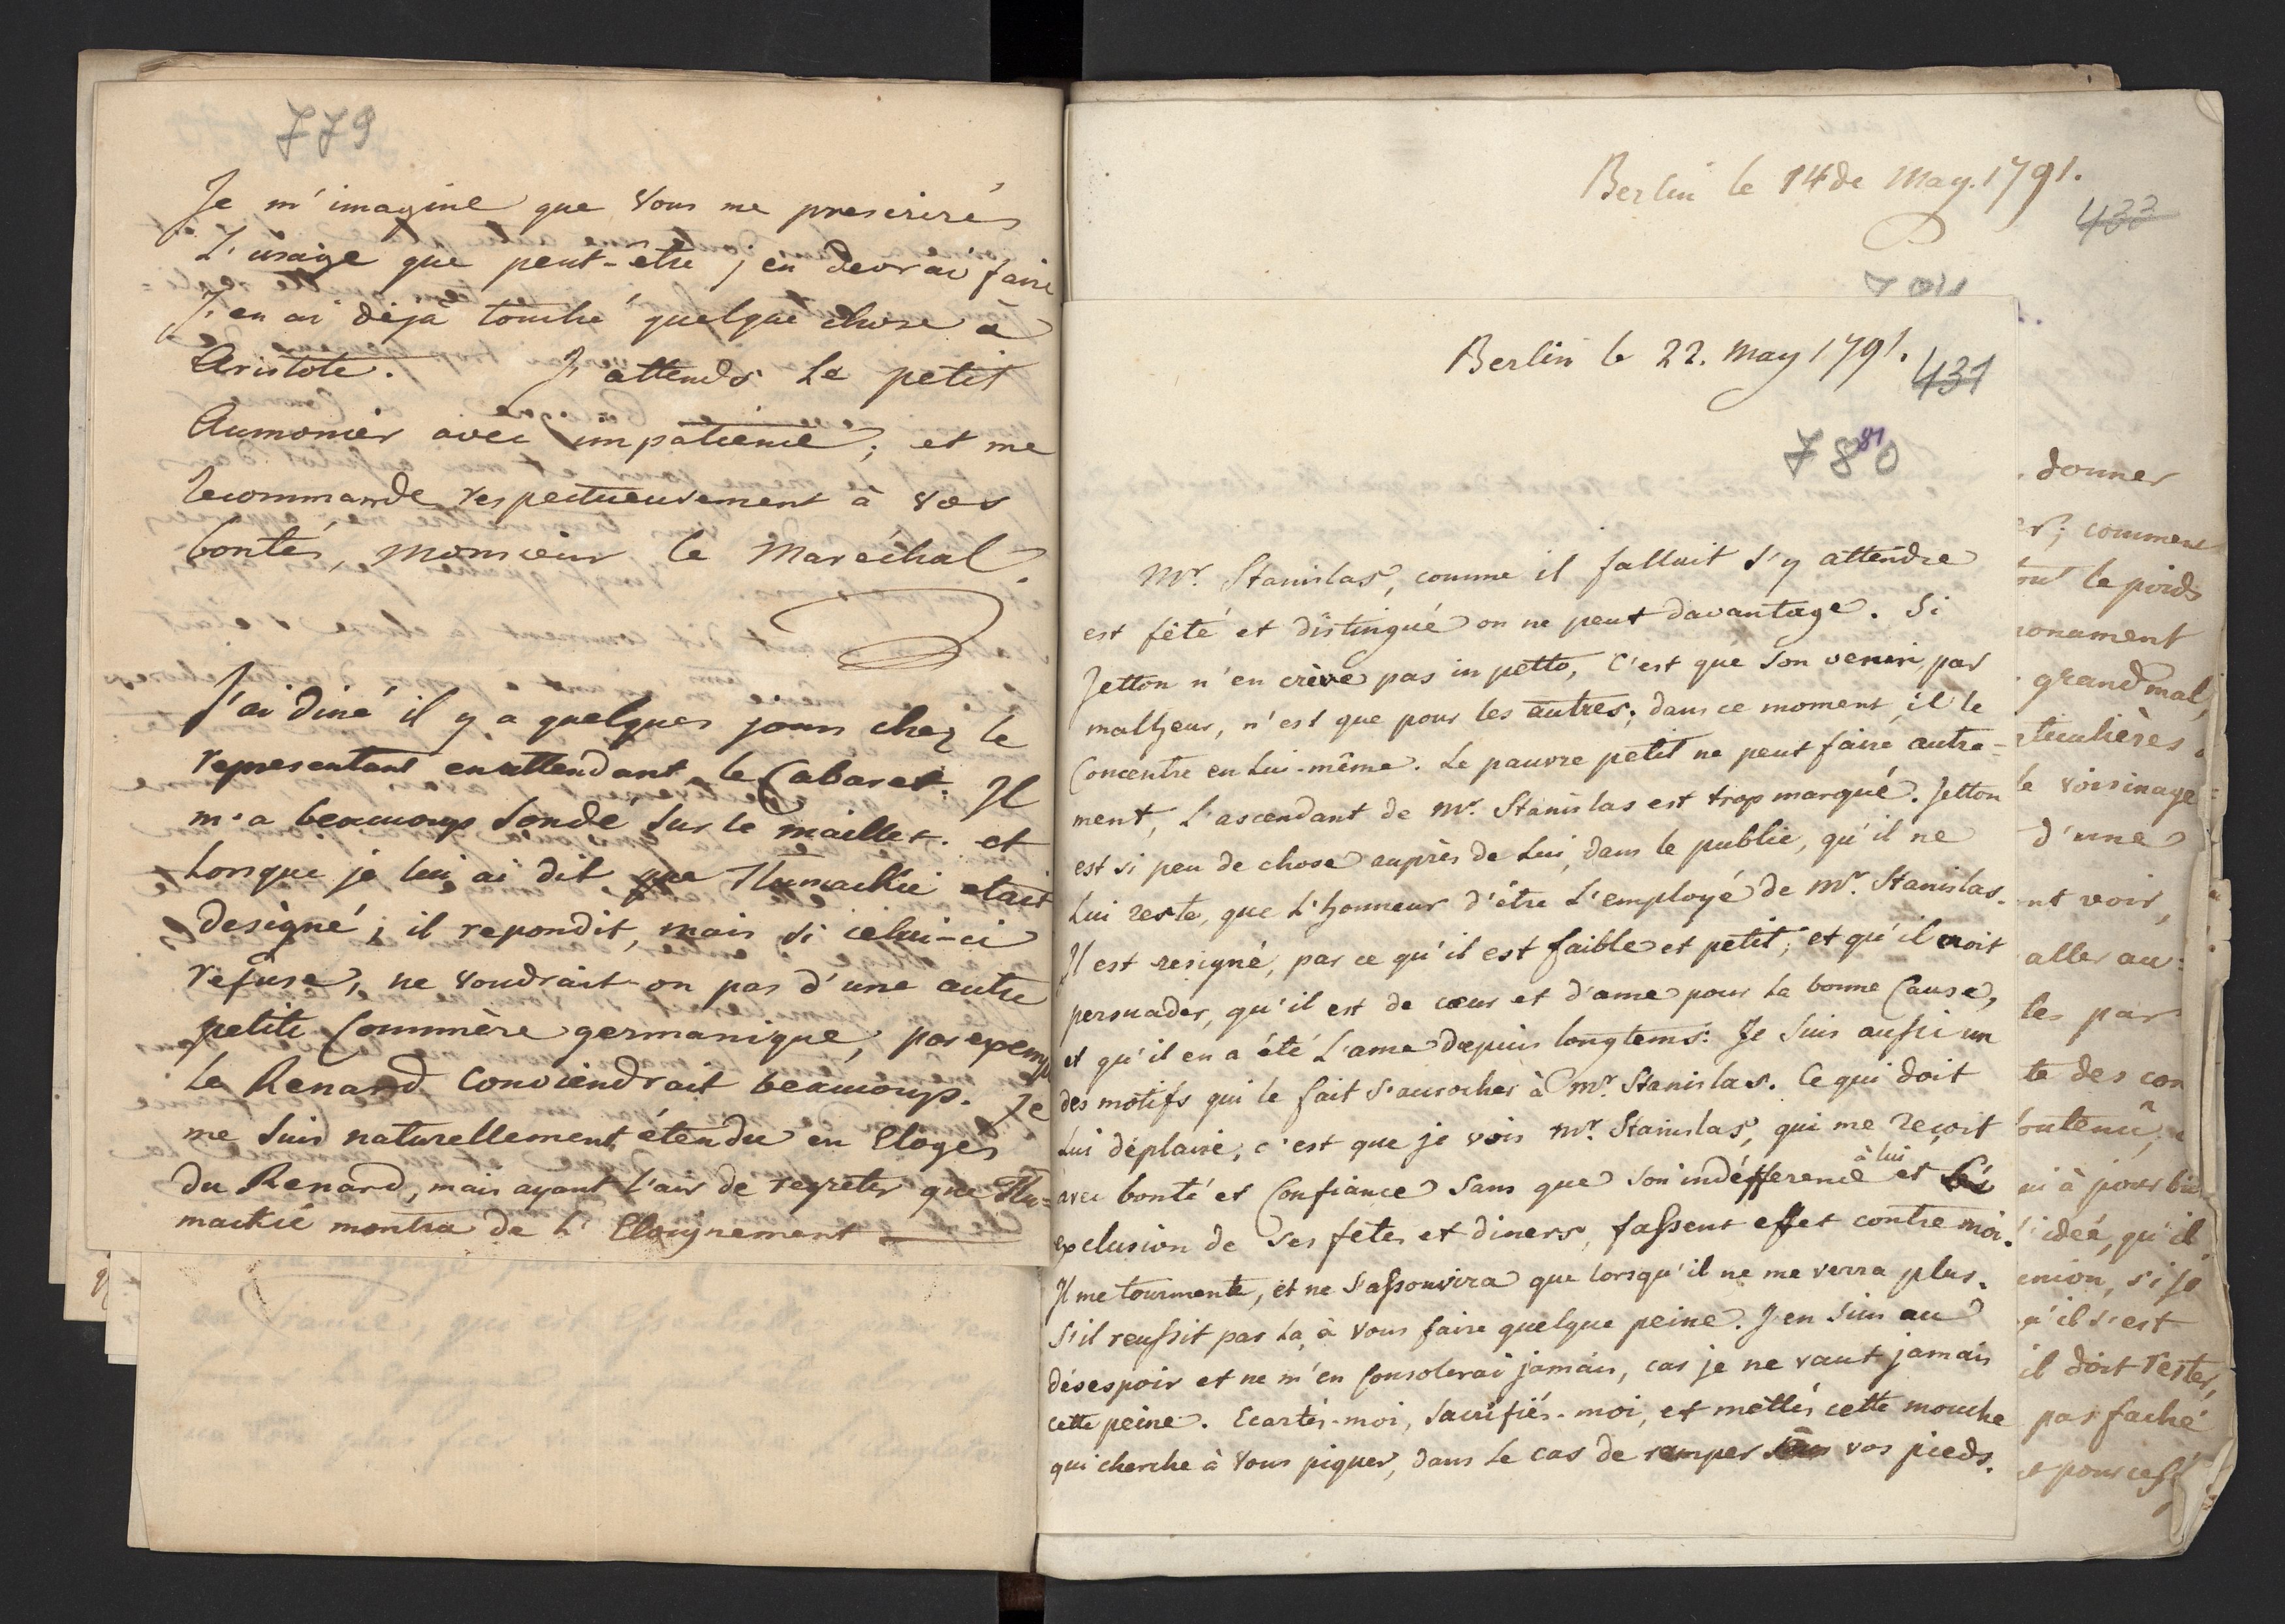 779
Je m'imagine que Vous me prescrirés
L'usage que peut-être j'en devrai faire
J'en ai dejà touché quelque chose à
Aristote. J'attends Le petit
Aumonier avec impatience; et me
recommande respectueusement à vos
bontés, Monsieur le Maréchal.
J'ai diné il y a quelques jours chez le
representant en attendant le Cabaret. Il
m'a beaucoup sondé sur le maillet. et
Lorsque je lui ai dit que était
designé; il repondit, mais si celui-ci
refuse, ne voudrait-on pas d'une autre
petite Commère germanique, par exemp
Le Renard conviendrait beaucoup. Je
me suis naturellement étendu en Eloges
du Renard, mais ayant l'air de regreter que
montra de L'Eloignement
Berlin le 14 de May. 1791.
433
Berlin le 22. May 1791.
431
780
81
Mr. Stanislas, comme il falluit s'y attendre
est fêté et distingué on ne peut davantage. Si
Jetton n'en crève pas in petto, C'est que Son venin, par
malheur, n'est que pour les autres; dans ce moment, il le
Concentre en Lui-même. Le pauvre petit ne peut faire autre-
ment, L'ascendant de Mr. Stanislas est trop marqué. Jetton
est si peu de chose auprès de Lui, dans le public, qu'il ne
Lui reste, que L'honneur d'être L'employé de Mr. Stanislas.
Il est resigné, par ce qu'il est faible et petit; et qu'il croit
persuader, qu'il est de cœur et d'ame pour la bonne Cause,
et qu'il en a été L'ame depuis longtems: Je suis aussi un
des motifs qui le fait s'accrocher à Mr. Stanislas. Ce qui doit
Lui déplaire, c'est que je vois Mr. Stanislas, qui me reçoit
avec bonté et Confiance Sans que Son indéfference à lui et
exclusion de Ses fêtes et diners, fassent effet contre moi.
Il me tourmente, et ne s'assouvira que lorsqu'il ne me verra plus.
S'il reussit par La, à Vous faire quelque peine. J'en suis au
désespoir et ne m'en Consolerai jamais, car je ne vaut jamais
cette peine. Ecartés-moi, Sacrifiés-moi, et mettés cette mouche
qui cherche à Vous piquer, dans Le cas de ramper vos pieds.
donner
er; comment
le poids
grand mal,
le voisinage
d'une
nt voir,
aller au
les par
te des con
l'idée, qu'il
qu'il s'est
il doit rester,
pas faché